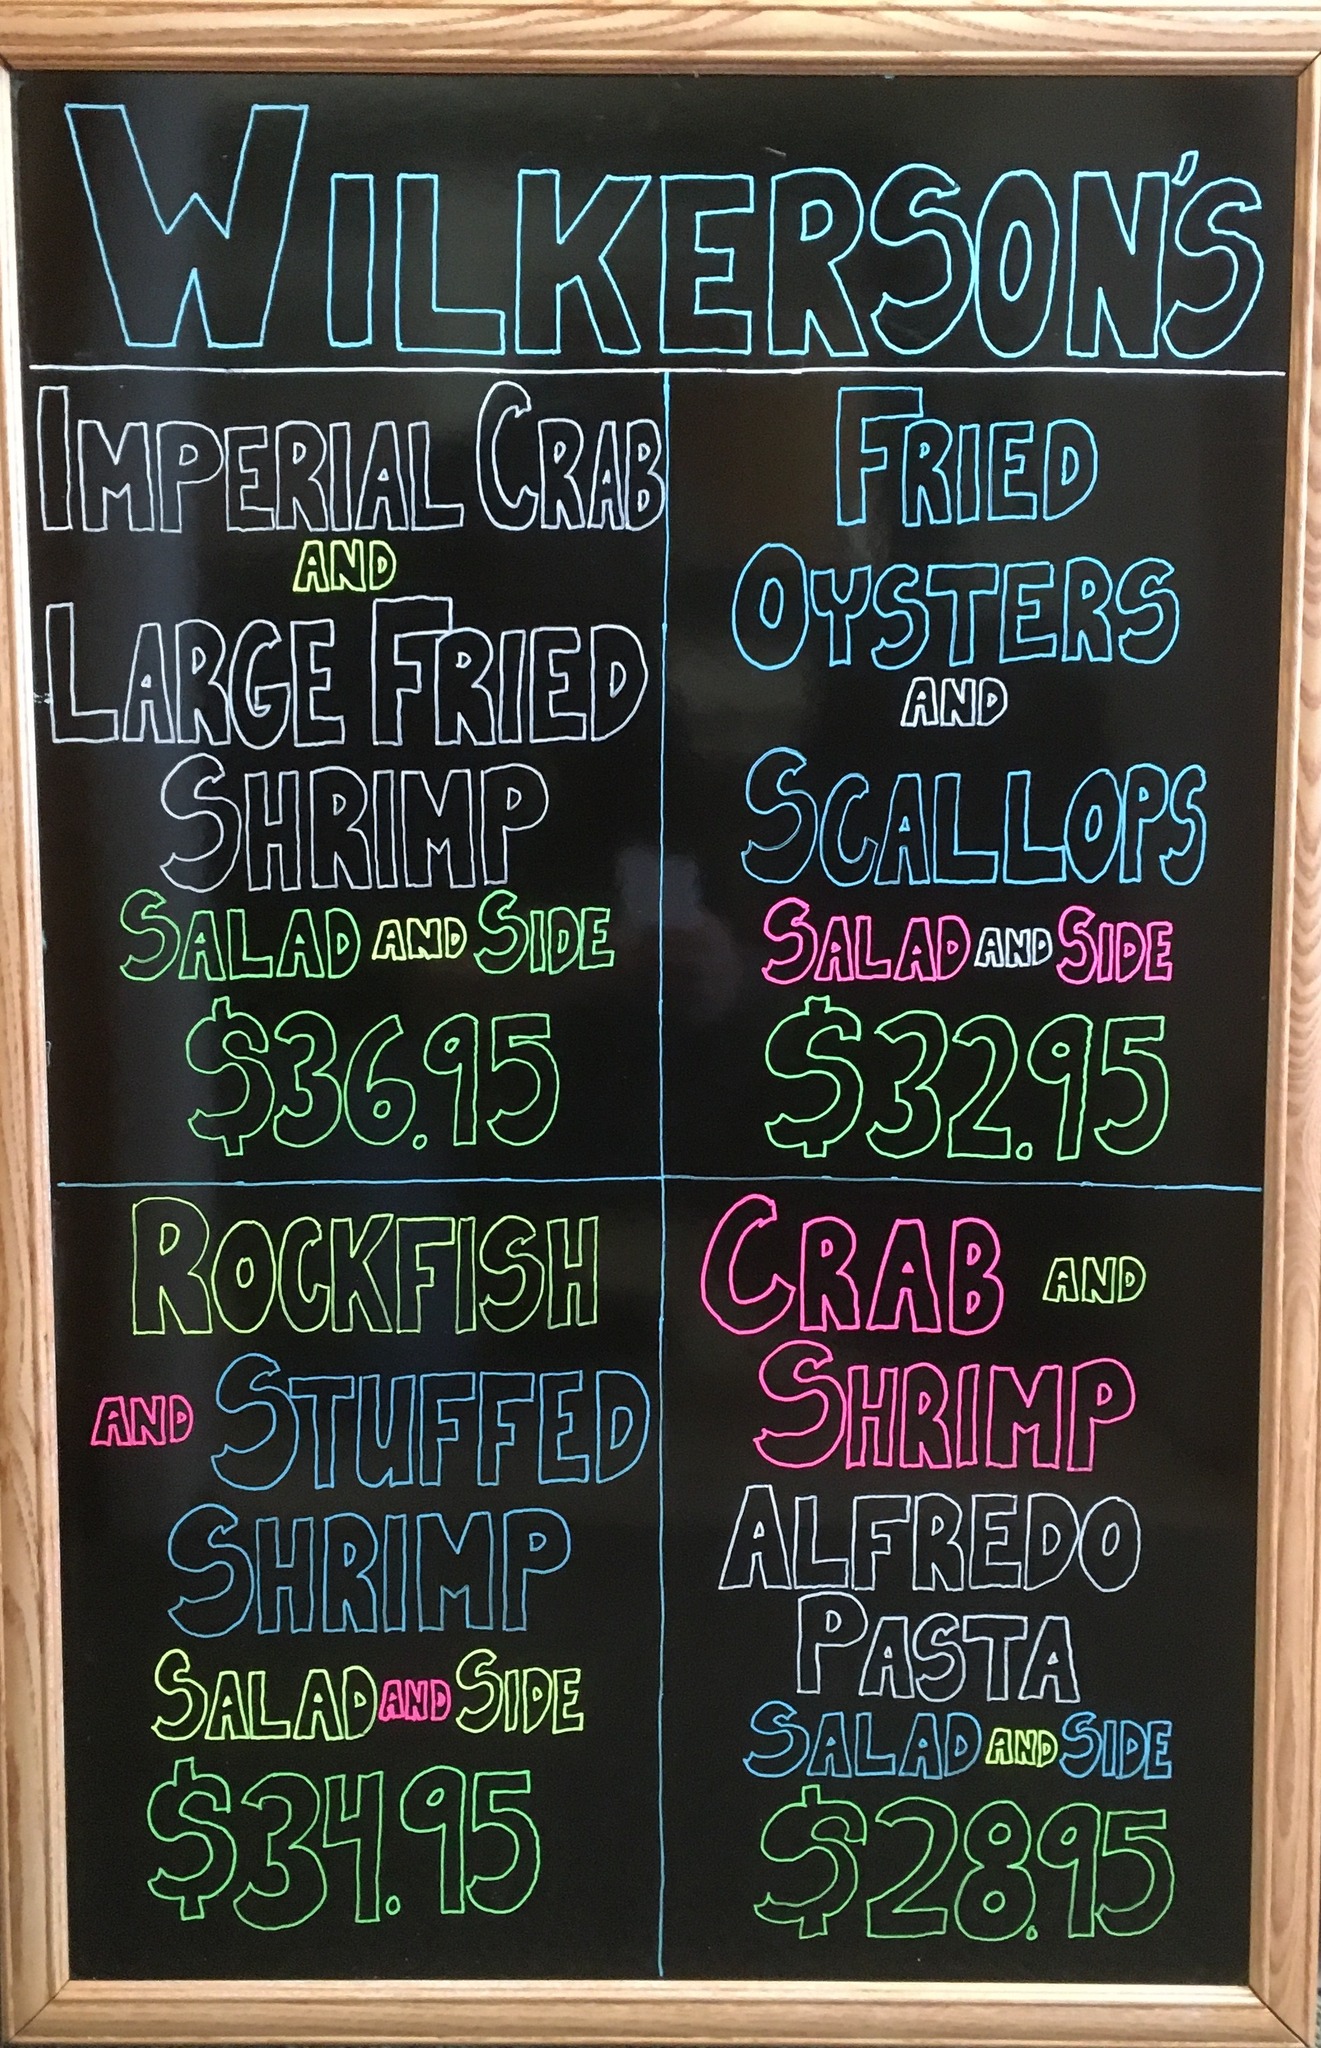 WILKERSON'S
IMPERIAL CRAB
AND
LARGE FRIED
SHRIMP
SALAD AND SIDE
$36.95
FRIED
OYSTERS
AND
SCALLOPS
SALAD AND SIDE
$32.95
ROCKFISH
AND STUFFED
SHRIMP
SALAD AND SIDE
$34.95
CRAB AND
SHRIMP
ALFREDO
PASTA
SALAD AND SIDE
$28.95